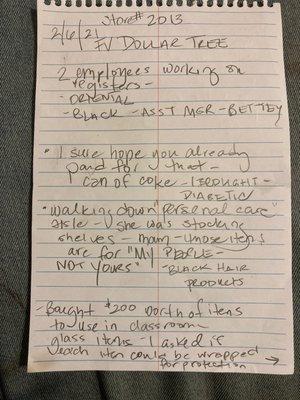 Store# 2013
2/6/21
FV DOLLAR TREE
2 employees working on
registers-
- ORIENTAL
- BLACK - ASST MGR - BETTEY
" I sure hope you already
paid for that -
can of coke - I BROUGHT -
DIABETIC
" walking down "personal care"
aisle - she was stocking
shelves - mam - those items
are for "MY PEOPLE -
NOT YOURS" - BLACK HAIR
PRODUCTS
- Bought $200 worth of items
to use in classroom
glass items - I asked if
each item could be wrapped
for protection →